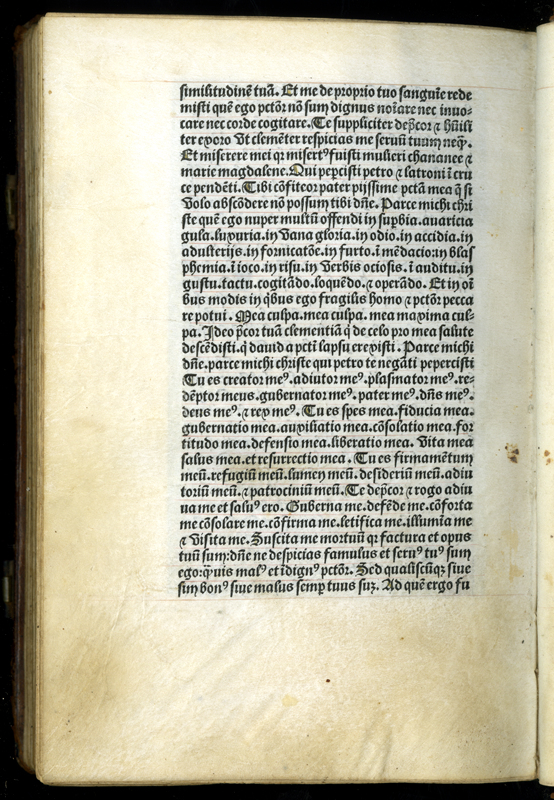 similitudinē tuā. Et me de proprio tuo sanguīe rede
misti quē ego pctōr nō sum dignus noīare nec inuo-
care nec corde cogitare. Te suppliciter dep̄cor ⁊ hūili
ter exoro vt clemēter respicias me seruū tuum neq̄.
Et miserere mei qr misertꝰ fuisti mulieri chananee ⁊
marie magdalene. Qui peꝑcisti petro ⁊ latroni ī cru
ce pendēti. Tibi cōfiteor pater pijssime pctā mea q̄ si
volo abscōdere nō possum tibi dn̄e. Parce michi chri
ste quē ego nuper multū offendi in suꝑbia.auaricia
gula.luxuria.in vana gloria.in odio.in accidia.in
adulterijs.in fornicatōe.in furto.ī mēdacio:in blas
phemia.ī ioco.in risu.in verbis ociosis.ī auditu.in
gustu.tactu.cogitādo.loquēdo.⁊ operādo. Et in oī
bus modis in q̇bus ego fragilis homo ⁊ pctōr pecca
re potui. Mea culpa.mea culpa. mea maxima cul-
pa. Ideo p̄cor tuā clementiā q̇ de celo pro mea salute
descēdisti.q̇ dauid a pcti lapsu erexisti. Parce michi
dn̄e.parce michi christe qui petro te negāti pepercisti
Tu es creator meꝰ.adiutor meꝰ.plasmator meꝰ.re-
dēptor meus.gubernator meꝰ.pater meꝰ.dn̄s meꝰ.
deus meꝰ.⁊ rex meꝰ. Tu es spes mea.fiducia mea.
gubernatio mea.auxiliatio mea.cōsolatio mea.for
titudo mea.defensio mea.liberatio mea. Vita mea
salus mea.et resurrectio mea. Tu es firmamētum
meū.refugiū meū.lumen meū.desideriū meū.adiu
toriū meū.⁊ patrociniū meū. Te dep̄cor ⁊ rogo adiu
ua me et saluꝰ ero. Guberna me.defēde me.cōforta
me cōsolare me.cōfirma me.letifica me.illumīa me
⁊ visita me. Suscita me mortuū qr factura et opus
tuū sum:dn̄e ne despicias famulus et seruꝰ tuꝰ sum
ego:q̄uis malꝰ et īdignꝰ pctōr. Sed qualiscūqꝫ siue
sim bonꝰ siue malus semꝑ tuus suꝫ. Ad quē ergo fu